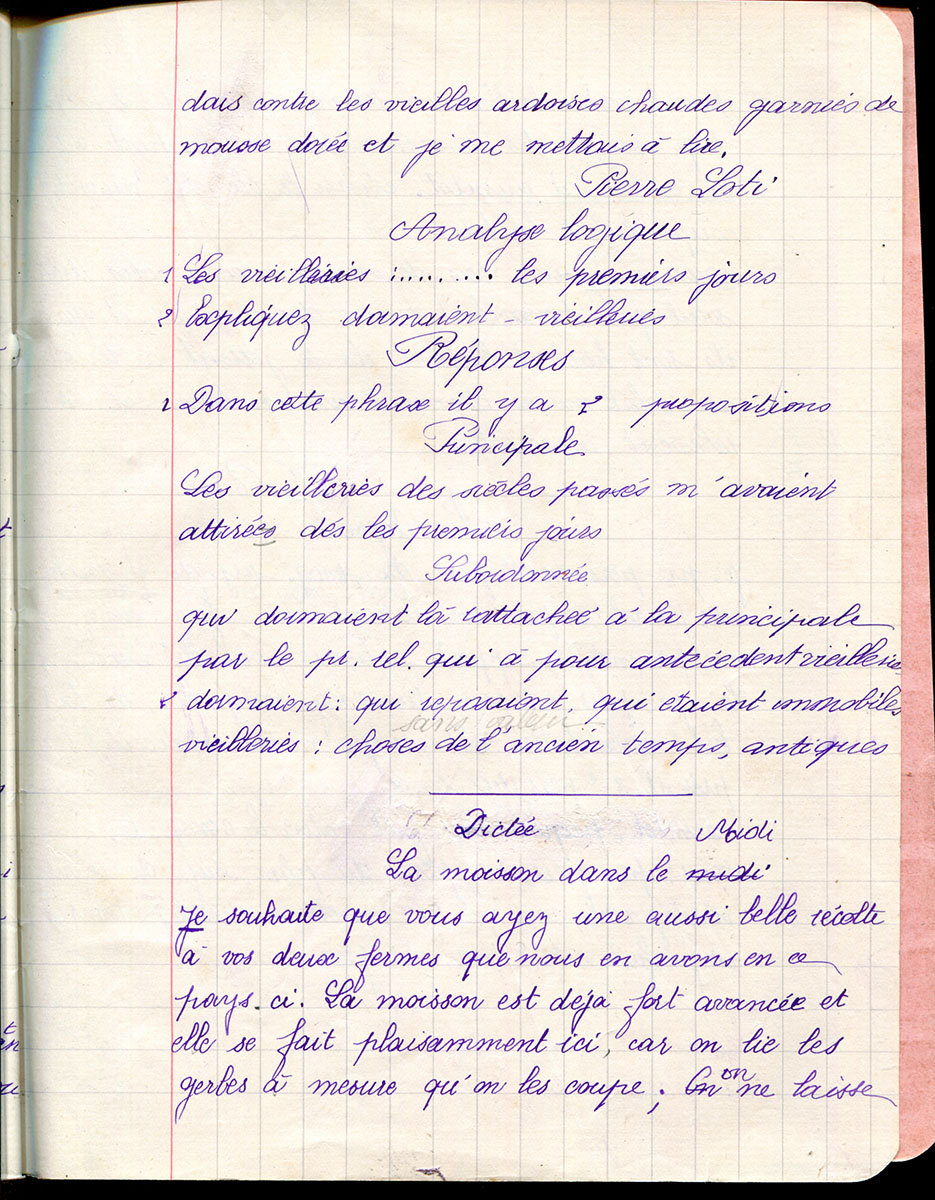 dais contre les vieilles ardoises chaudes garnies de
mousse dorée et je me mettais à lire.
Pierre Loti
Analyse logique
1 Les vieilleries :........ les premiers jours
2 Expliquez dormaient - vieilleries
Réponses
1 Dans cette phrase il y a 2 propositions
Principale
Les vieilleries des siècles passés m'avaient
attirées dés les premiers jours
Subordonnée
qui dormaient là rattachée à la principale
par le pr. rel. qui à pour antécédent vieilleries
2 dormaient : qui reposaient, qui étaient immobiles
sans valeur
vieilleries : choses de l'ancien temps, antiques
Dictée
Midi
La moisson dans le midi
Je souhaite que vous ayez une aussi belle récolte
à vos deux fermes que nous en avons en ce
pays.ci. La moisson est dejà fort avancée et
elle se fait plaisamment ici, car on lie les
gerbes à mesure qu'on les coupe ; On on ne laisse